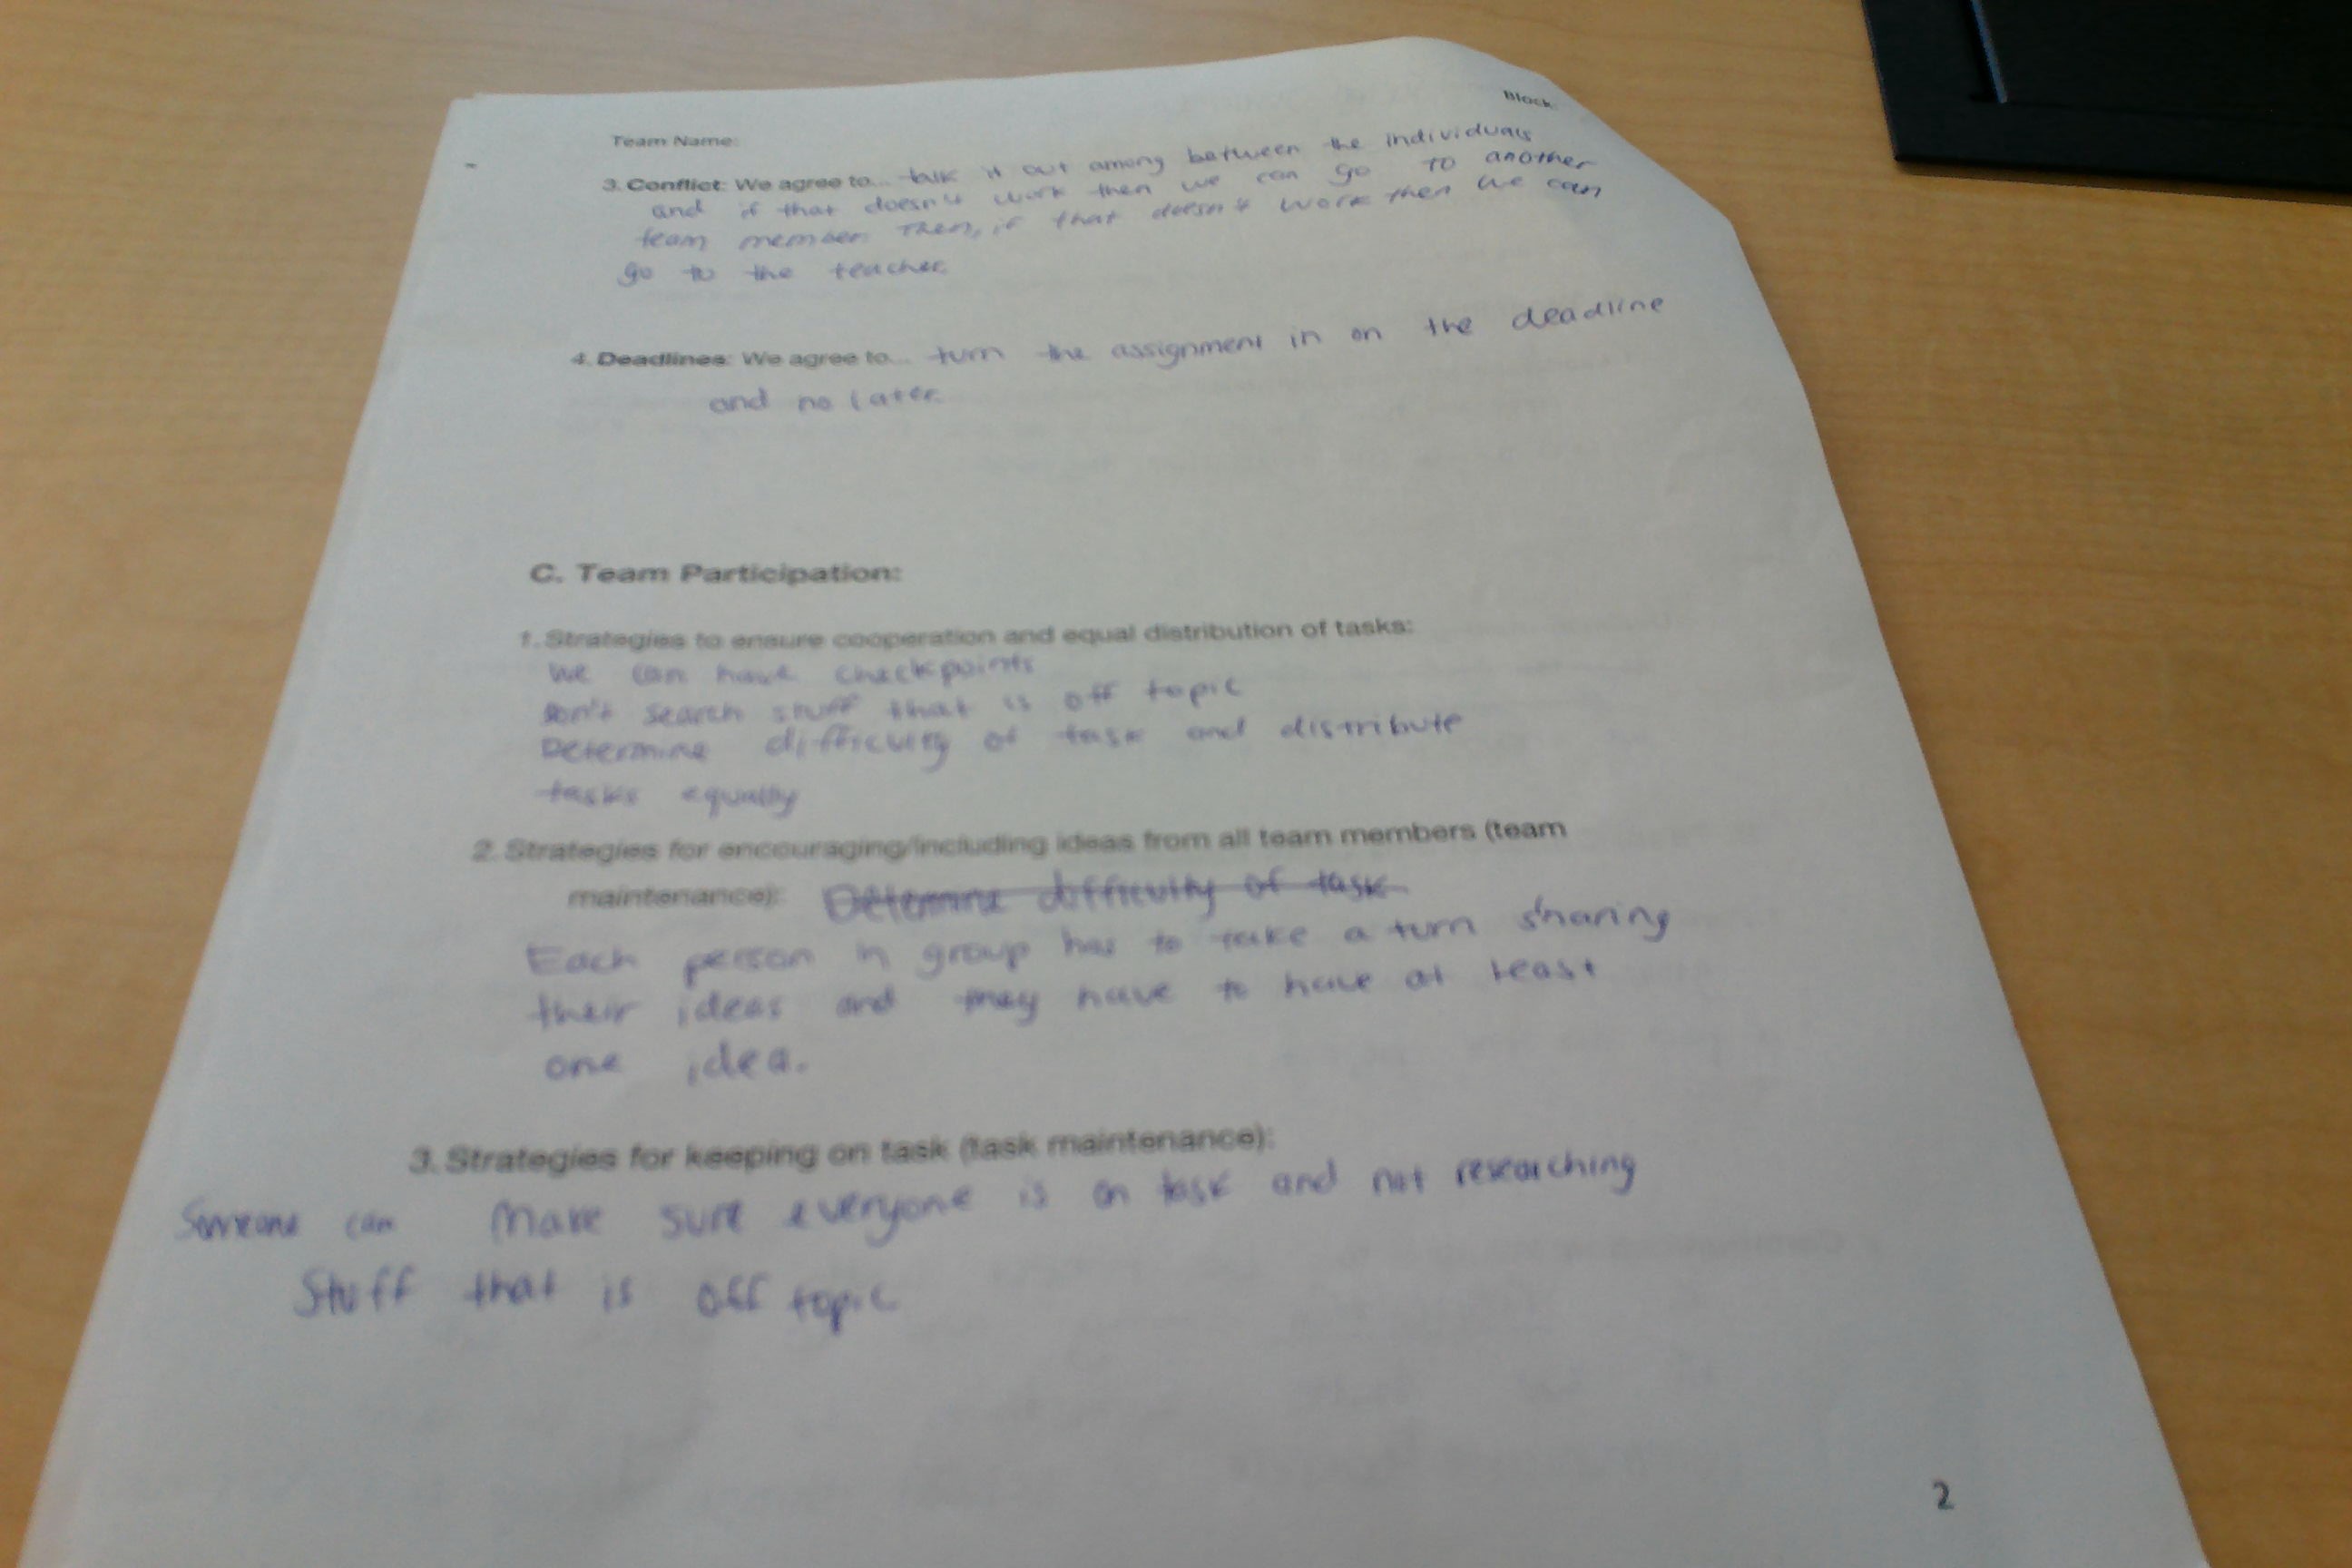 Block
Team Name:
3. Conflict: We agree to... talk it out among between the individuals
and if that doesn't work then we can go to another
team member. Then, if that doesn't work then we can
go to the teacher.
4. Deadlines: We agree to... turn the assignment in on the deadline
and no later.
C. Team Participation:
1. Strategies to ensure cooperation and equal distribution of tasks:
We can have checkpoints
Don't search stuff that is off topic
Determine difficulty of task and distribute
tasks equally
2. Strategies for encouraging/including ideas from all team members (team
maintenance): Determine difficulty of task
Each person in group has to take a turn sharing
their ideas and they have to have at least
one idea.
3. Strategies for keeping on task (task maintenance):
Someone can make sure everyone is on task and not researching
Stuff that is off topic
2